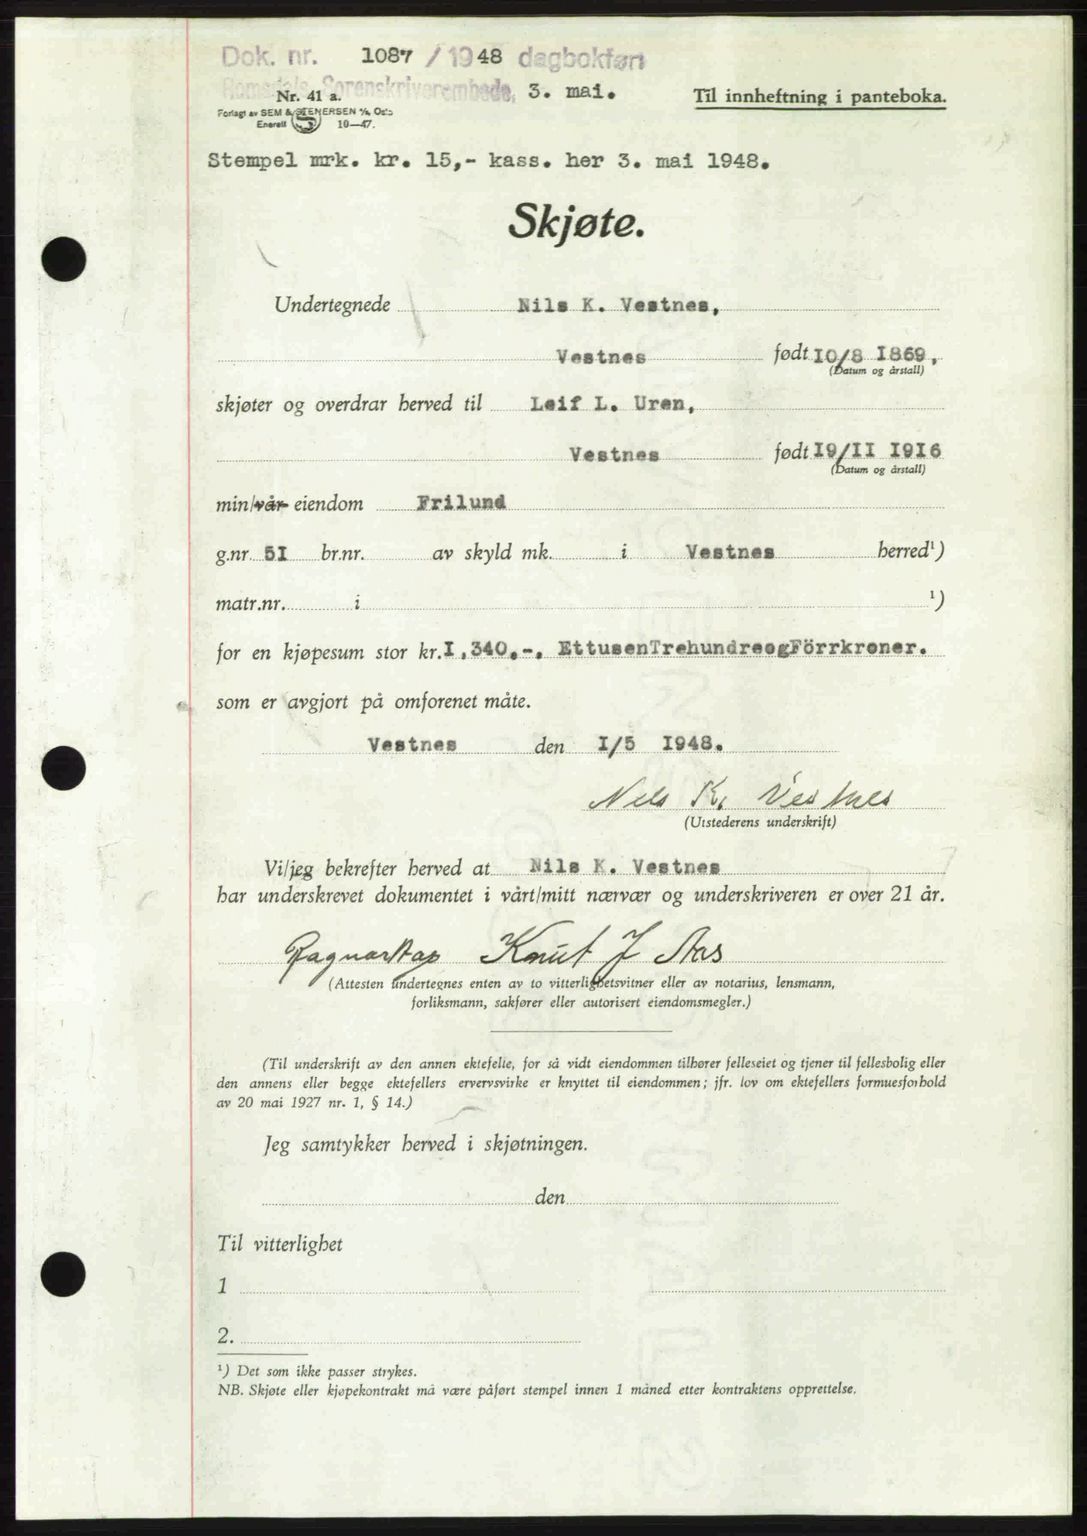 Dok. nr. 1087 / 1948 dagbokført
Romsdals Sorenskriverembede, 3. mai.
Nr. 41 a.
Til innheftning i panteboka.
Forlagt av SEM & STENERSEN A/S, Oslo
Enerett 10—47.
Stempel mrk. kr. 15,- kass. her 3. mai 1948.
Skjøte.
Undertegnede Nils K. Vestnes,
Vestnes født 10/8 1869,
(Datum og årstall)
skjøter og overdrar herved til Leif L. Uren,
Vestnes født 19/11 1916
(Datum og årstall)
min/vår eiendom Frilund
g.nr. 51 br.nr. av skyld mk. i Vestnes herred¹)
matr.nr. i ¹)
for en kjøpesum stor kr. I,340.-. EttusenTrehundreogFörrkroner.
som er avgjort på omforenet måte.
Vestnes den I/5 1948.
Nils K. Vestnes
(Utstederens underskrift)
Vi/jeg bekrefter herved at Nils K. Vestnes
har underskrevet dokumentet i vårt/mitt nærvær og underskriveren er over 21 år.
Knut J Aas
(Attesten undertegnes enten av to vitterlighetsvitner eller av notarius, lensmann,
forliksmann, sakfører eller autorisert eiendomsmegler.)
(Til underskrift av den annen ektefelle, for så vidt eiendommen tilhører felleseiet og tjener til fellesbolig eller
den annens eller begge ektefellers ervervsvirke er knyttet til eiendommen; jfr. lov om ektefellers formuesforhold
av 20 mai 1927 nr. 1, § 14.)
Jeg samtykker herved i skjøtningen.
den
Til vitterlighet
1
2.
¹) Det som ikke passer strykes.
NB. Skjøte eller kjøpekontrakt må være påført stempel innen 1 måned etter kontraktens opprettelse.